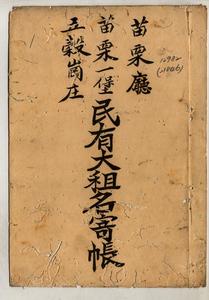 苗栗廳
苗栗一堡
五穀崗庄
民有大租名寄帳